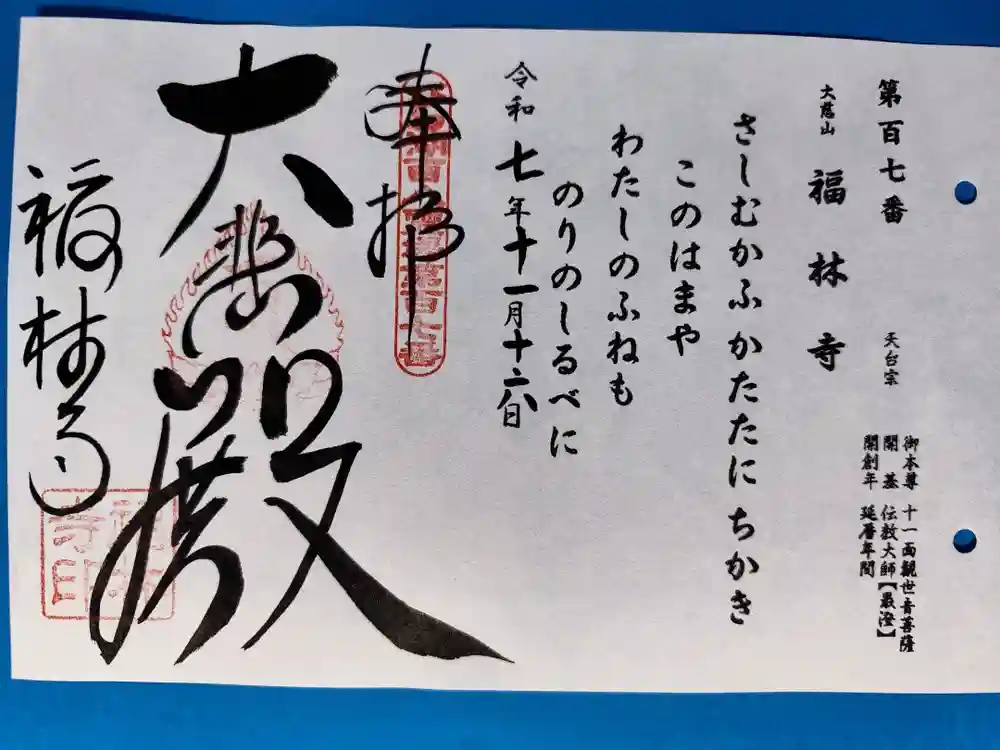 第百七番
大慈山 福林寺 天台宗
御本尊 十一面観世音菩薩
開基 伝教大師【最澄】
開創年 延暦年間
さしむかふかたたにちかき
このはまや
わたしのふねも
のりのしるべに
令和七年十一月十六日
奉拝
大悲殿
福林寺